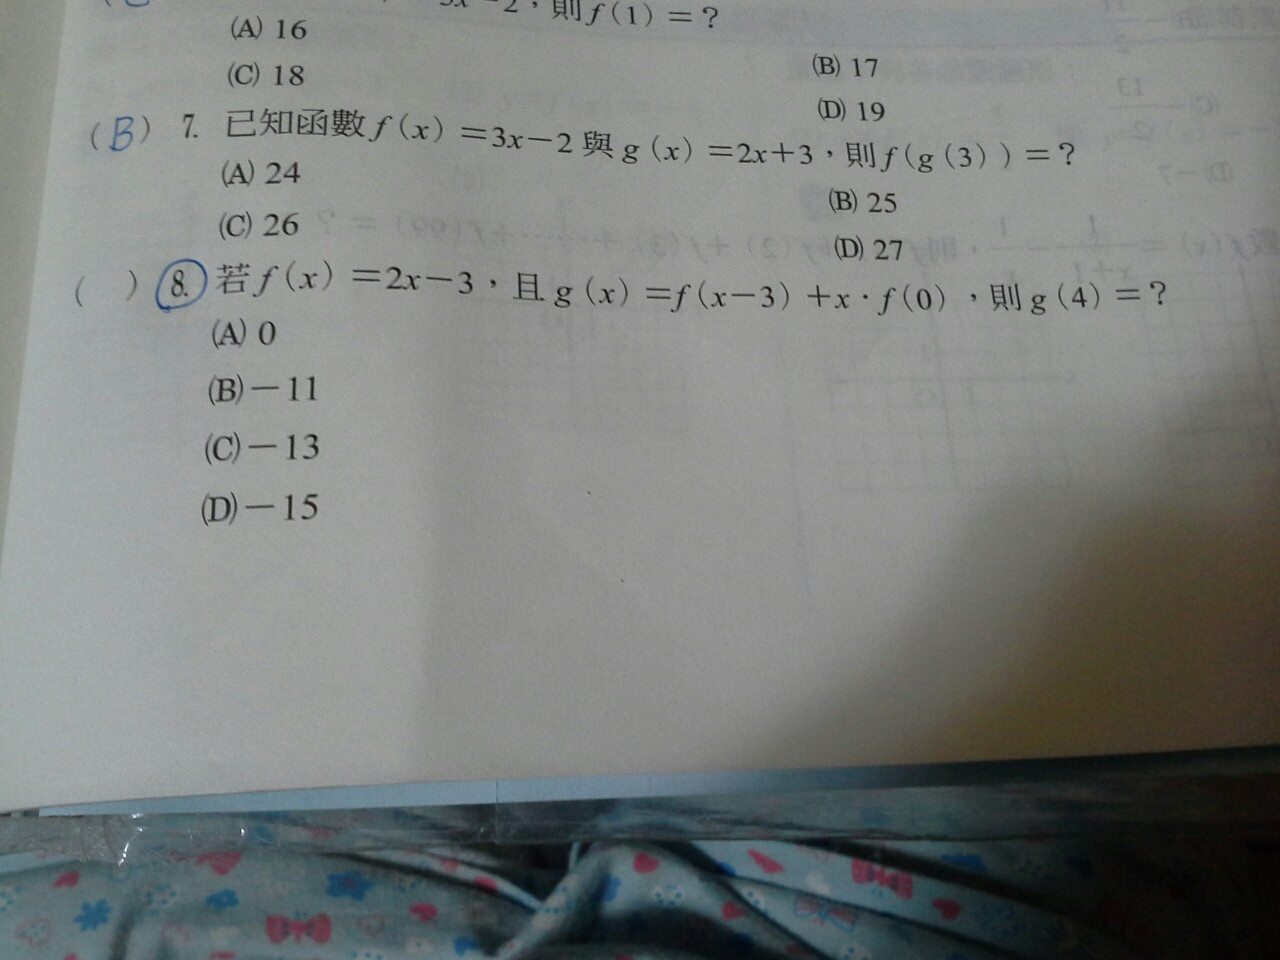 則f(1)=?
(A) 16
(B) 17
(C) 18
(D) 19
(B) 7. 已知函數f(x)=3x-2與g(x)=2x+3，則f(g(3))=?
(A) 24
(B) 25
(C) 26
(D) 27
( ) 8. 若f(x)=2x-3，且g(x)=f(x-3)+x·f(0)，則g(4)=?
(A) 0
(B) -11
(C) -13
(D) -15